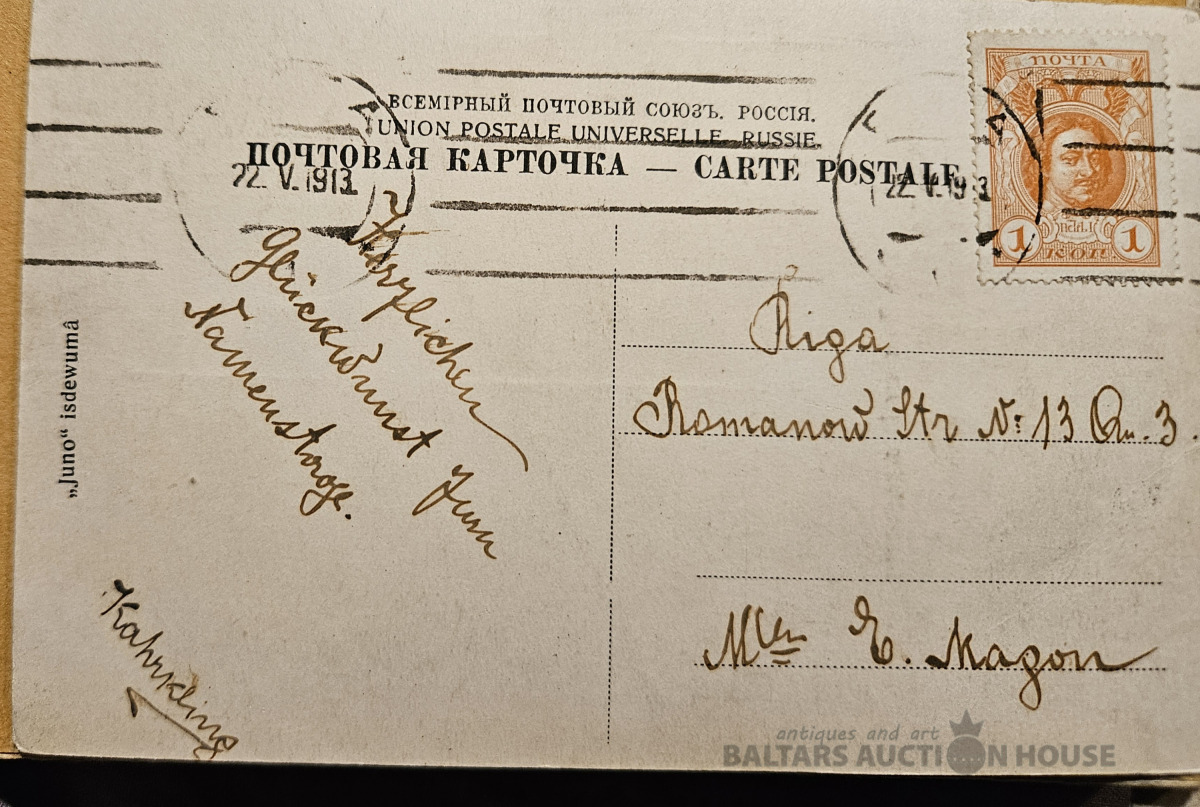 ВСЕМІРНЫЙ ПОЧТОВЫЙ СОЮЗЪ. РОССІЯ.
UNION POSTALE UNIVERSELLE. RUSSIE.
ПОЧТОВАЯ КАРТОЧКА — CARTE POSTALE
22. V. 1913
22. V. 1913
ПОЧТА
1 1
КОП
„Juno“ isdewumâ
Herzlichen
Glückwunst zum
Namenstage.
Kahrkling
Riga
Romanow Str N: 13 Qu. 3.
E. Magon
antiques and art
BALTARS AUCTION HOUSE